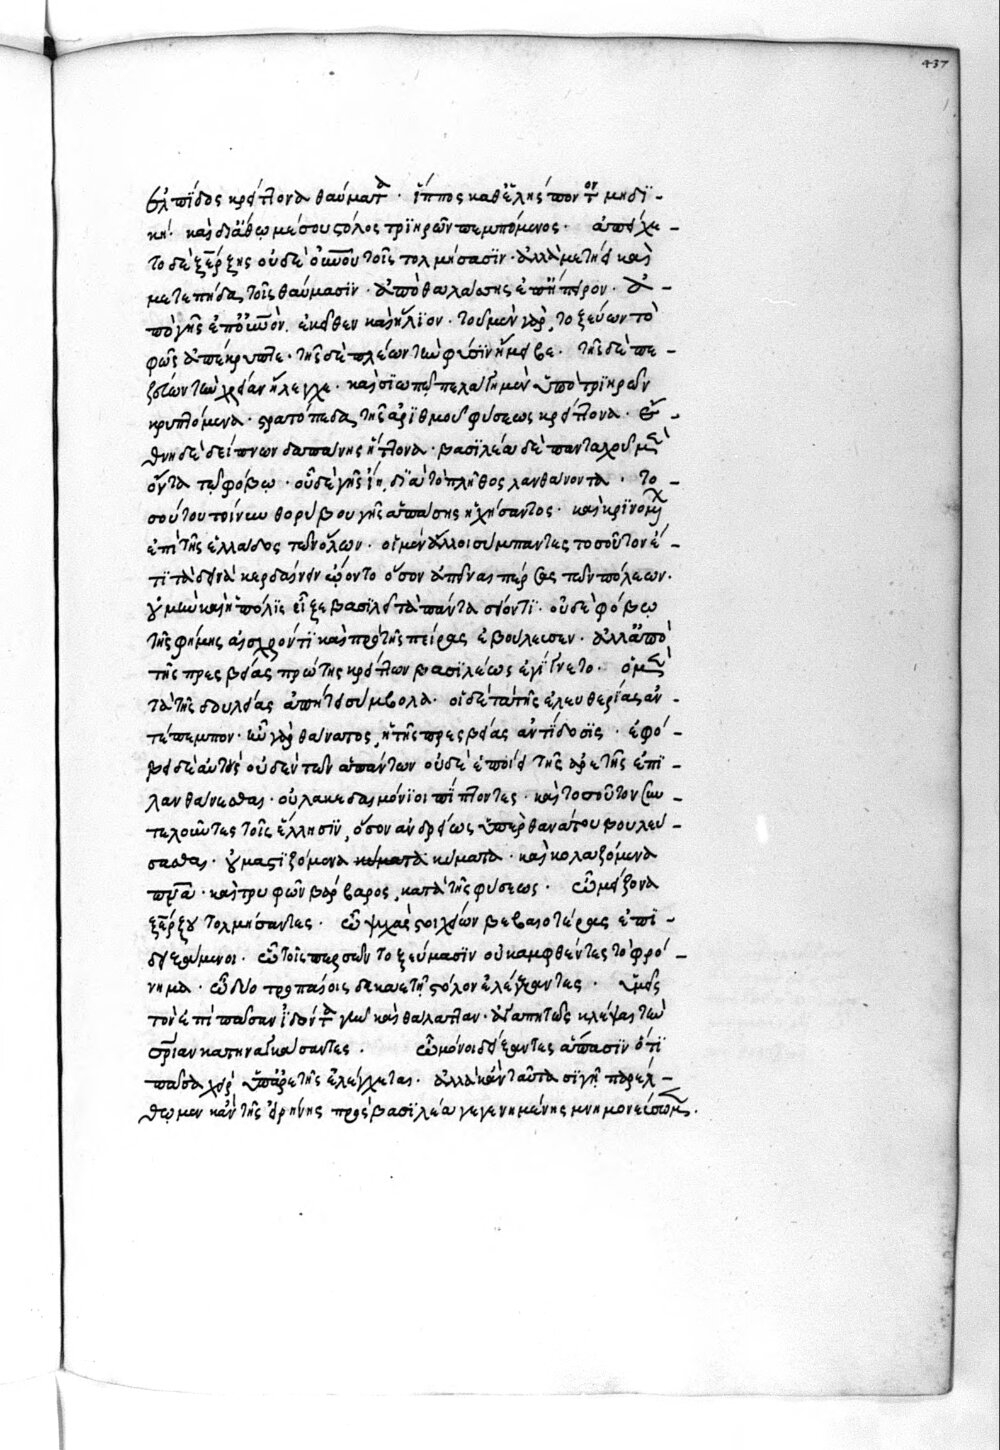 437
ἐλπίδος κρείττονα θαύματα · ἵππος καθ' Ἑλλήσποντον μηδι-
κή · καὶ δι' Ἄθω μέσου στόλος τριηρῶν πεμπόμενος · ἀπέχε-
το δὲ ξέρξης οὐδὲ τοῖς τολμήσασιν · ἀλλὰ μετῄει καὶ
μετεπήδα τοῖς θαύμασιν · ἀπὸ θαλάσσης ἐπ' ἤπειρον · ἀ-
πὸ γῆς ἐπ' ἐκεῖθεν καὶ ἥλιον · τοῦ μὲν γὰρ τοξεύων τὸ
φῶς ἀπέκρυπτε · τῆς δὲ πλέων τὴν φύσιν ἤμειβε · τῆς δὲ πε-
ζεύων τὴν χρείαν ἤλεγχε · καὶ σιωπῶ πελάγη μὲν ὑπὸ τριήρων
κρυπτόμενα · στρατόπεδα τῆς ἀριθμοῦ φύσεως κρείττονα · ἔ-
θνη δὲ δείπνων δαπάνης ἥττονα · βασιλέα δὲ πανταχοῦ μὲν
ὄντα τῷ φόβῳ · οὐδὲ γῆς διὰ τὸ πλῆθος λανθάνοντα · το-
σούτου τοίνυν θορύβου γῆς ἁπάσης ἠχήσαντος · καὶ κρινομένων
ἐπὶ τῆς ἑλλάδος τῶν ὅλων · οἱ μὲν ἄλλοι σύμπαντες τοσοῦτον ἔ-
τι τὰ δεινὰ κερδαίνειν ᾤοντο ὅσον ἀπῆν πέρσας τῶν πόλεων ·
ἡμῶν καὶ ἡ πόλις εἶξε βασιλεῖ τὰ πάντα σείοντι · οὐδὲ φόβῳ
τῆς φήμης αἰσχρόν τι καὶ πρὸ τῆς πείρας ἐβούλευσεν · ἀλλ' ἀπὸ
τῆς πρεσβείας πρώτης κρείττων βασιλέως ἐγίγνετο · ὁ μὲν
τὰ τῆς δουλείας ἀπῄτει σύμβολα · οἱ δὲ τὰ τῆς ἐλευθερίας ἀν-
τέπεμπον · ἦν γὰρ θάνατος ἡ τῆς πρεσβείας ἀντίδοσις · ἐφό-
βει δὲ αὐτοὺς οὐδὲν τῶν ἁπάντων οὐδὲ ἐποίει τῆς ἀρετῆς ἐπι-
λανθάνεσθαι · οὐ λακεδαιμόνιοι πίπτοντες · καὶ τοσοῦτον συν-
τελοῦντες τοῖς ἕλλησιν, ὅσον ἀνδρείως ὑπὲρ θανάτου βουλεύ-
σασθαι · οὐ μαστιζόμενα κύματα κύματα · καὶ κολαζόμενα
· καὶ τρυφῶν βάρβαρος, κατὰ τῆς φύσεως · ὢ μείζονα
ξέρξου τολμήσαντες · ὢ ψυχὰς στοιχείων βεβαιοτέρας ἐπι-
δειξάμενοι · ὢ τοῖς περσῶν τοξεύμασιν οὐ καμφθέντες τὸ φρό-
νημα · ὢ δύο τροπαίοις δεκαετῆ στόλον ἐλέγξαντες · ὑμεῖς
τὸν ἐπὶ πᾶσαν ἰδόντα γῆν καὶ θάλατταν · ἀγαπητῶς κλέψαι τὴν
σωτηρίαν κατηναγκάσαντες · ὢ μόνοι δείξαντες ἅπασιν ὅτι
πᾶσα χεὶρ ὑπ' ἀρετῆς ἐλέγχεται · ἀλλὰ κἂν ταῦτα σιγῇ παρέλ-
θωμεν κἂν τῆς εἰρήνης πρὸς βασιλέα γεγενημένης μνημονεύσωμεν ·